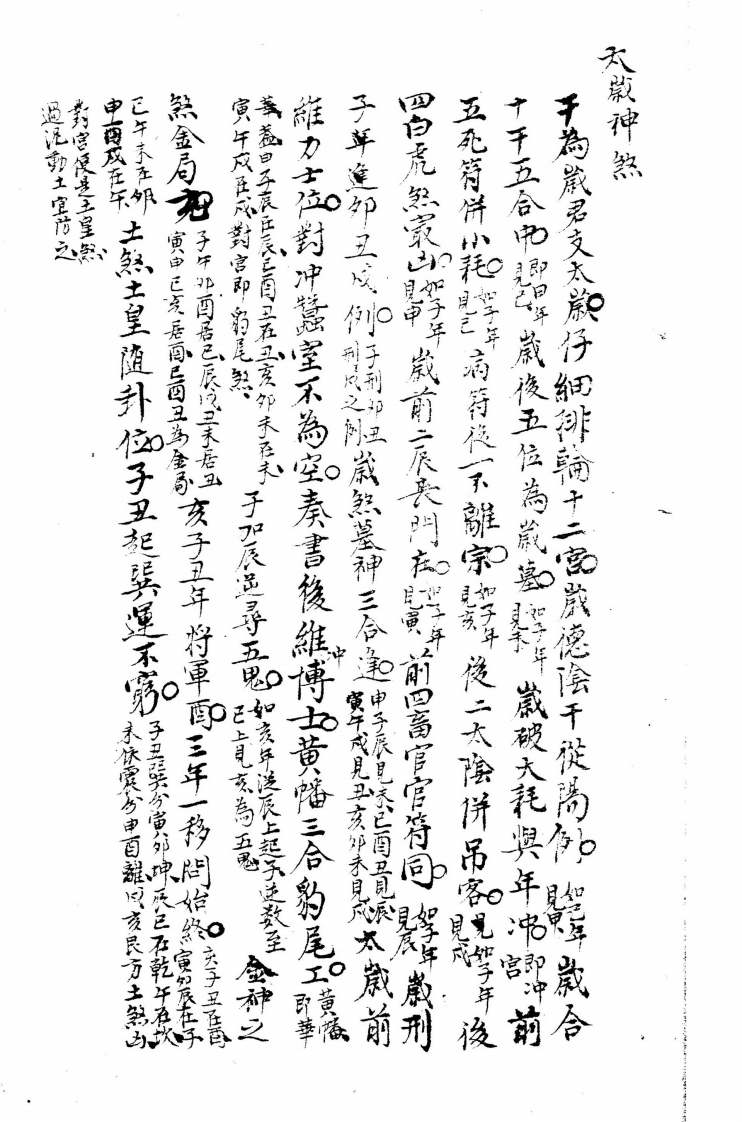 太歲神煞
干為歲君支太歲仔細排輪十二宮歲德陰干從陽例如己年見甲歲合
十干五合中即甲年見己歲後五位為歲墓如子年見未歲破大耗與年冲即冲宮前
五死符併小耗如子年見巳病符後一不離宗如子年見亥後二太陰併吊客如子年見戌後
四白虎煞最凶如子年見申歲前二辰喪門在如子年見寅前四畜官官符同如子年見辰歲刑
子年進卯丑戌例子刑卯丑刑戌之例歲煞墓神三合逢申子辰見未巳酉丑見辰寅午戌見丑亥卯未見戌太歲前
維力士位對冲蠶室不為空奏書後維冲博士黃幡三合豹尾工黃幡即華
華蓋申子辰在辰巳酉丑在丑亥卯未在未寅午戌在戌對宮即豹尾煞子加辰逆尋五鬼如亥年從辰上起子逆数至巳上見亥為五鬼金神之
煞金局子午卯酉居巳辰戌丑未居丑寅申巳亥居酉巳酉丑為金局亥子丑年將軍酉三年一移問始終亥子丑在酉寅卯辰在子
巳午未在卯申酉戌在午土煞土皇随卦位子丑起巽運不窮子丑巽分寅卯坤辰巳在乾午在坎未依震分申酉離戌亥艮方土煞凶
對宮便是土皇煞
過泥動土宜防之